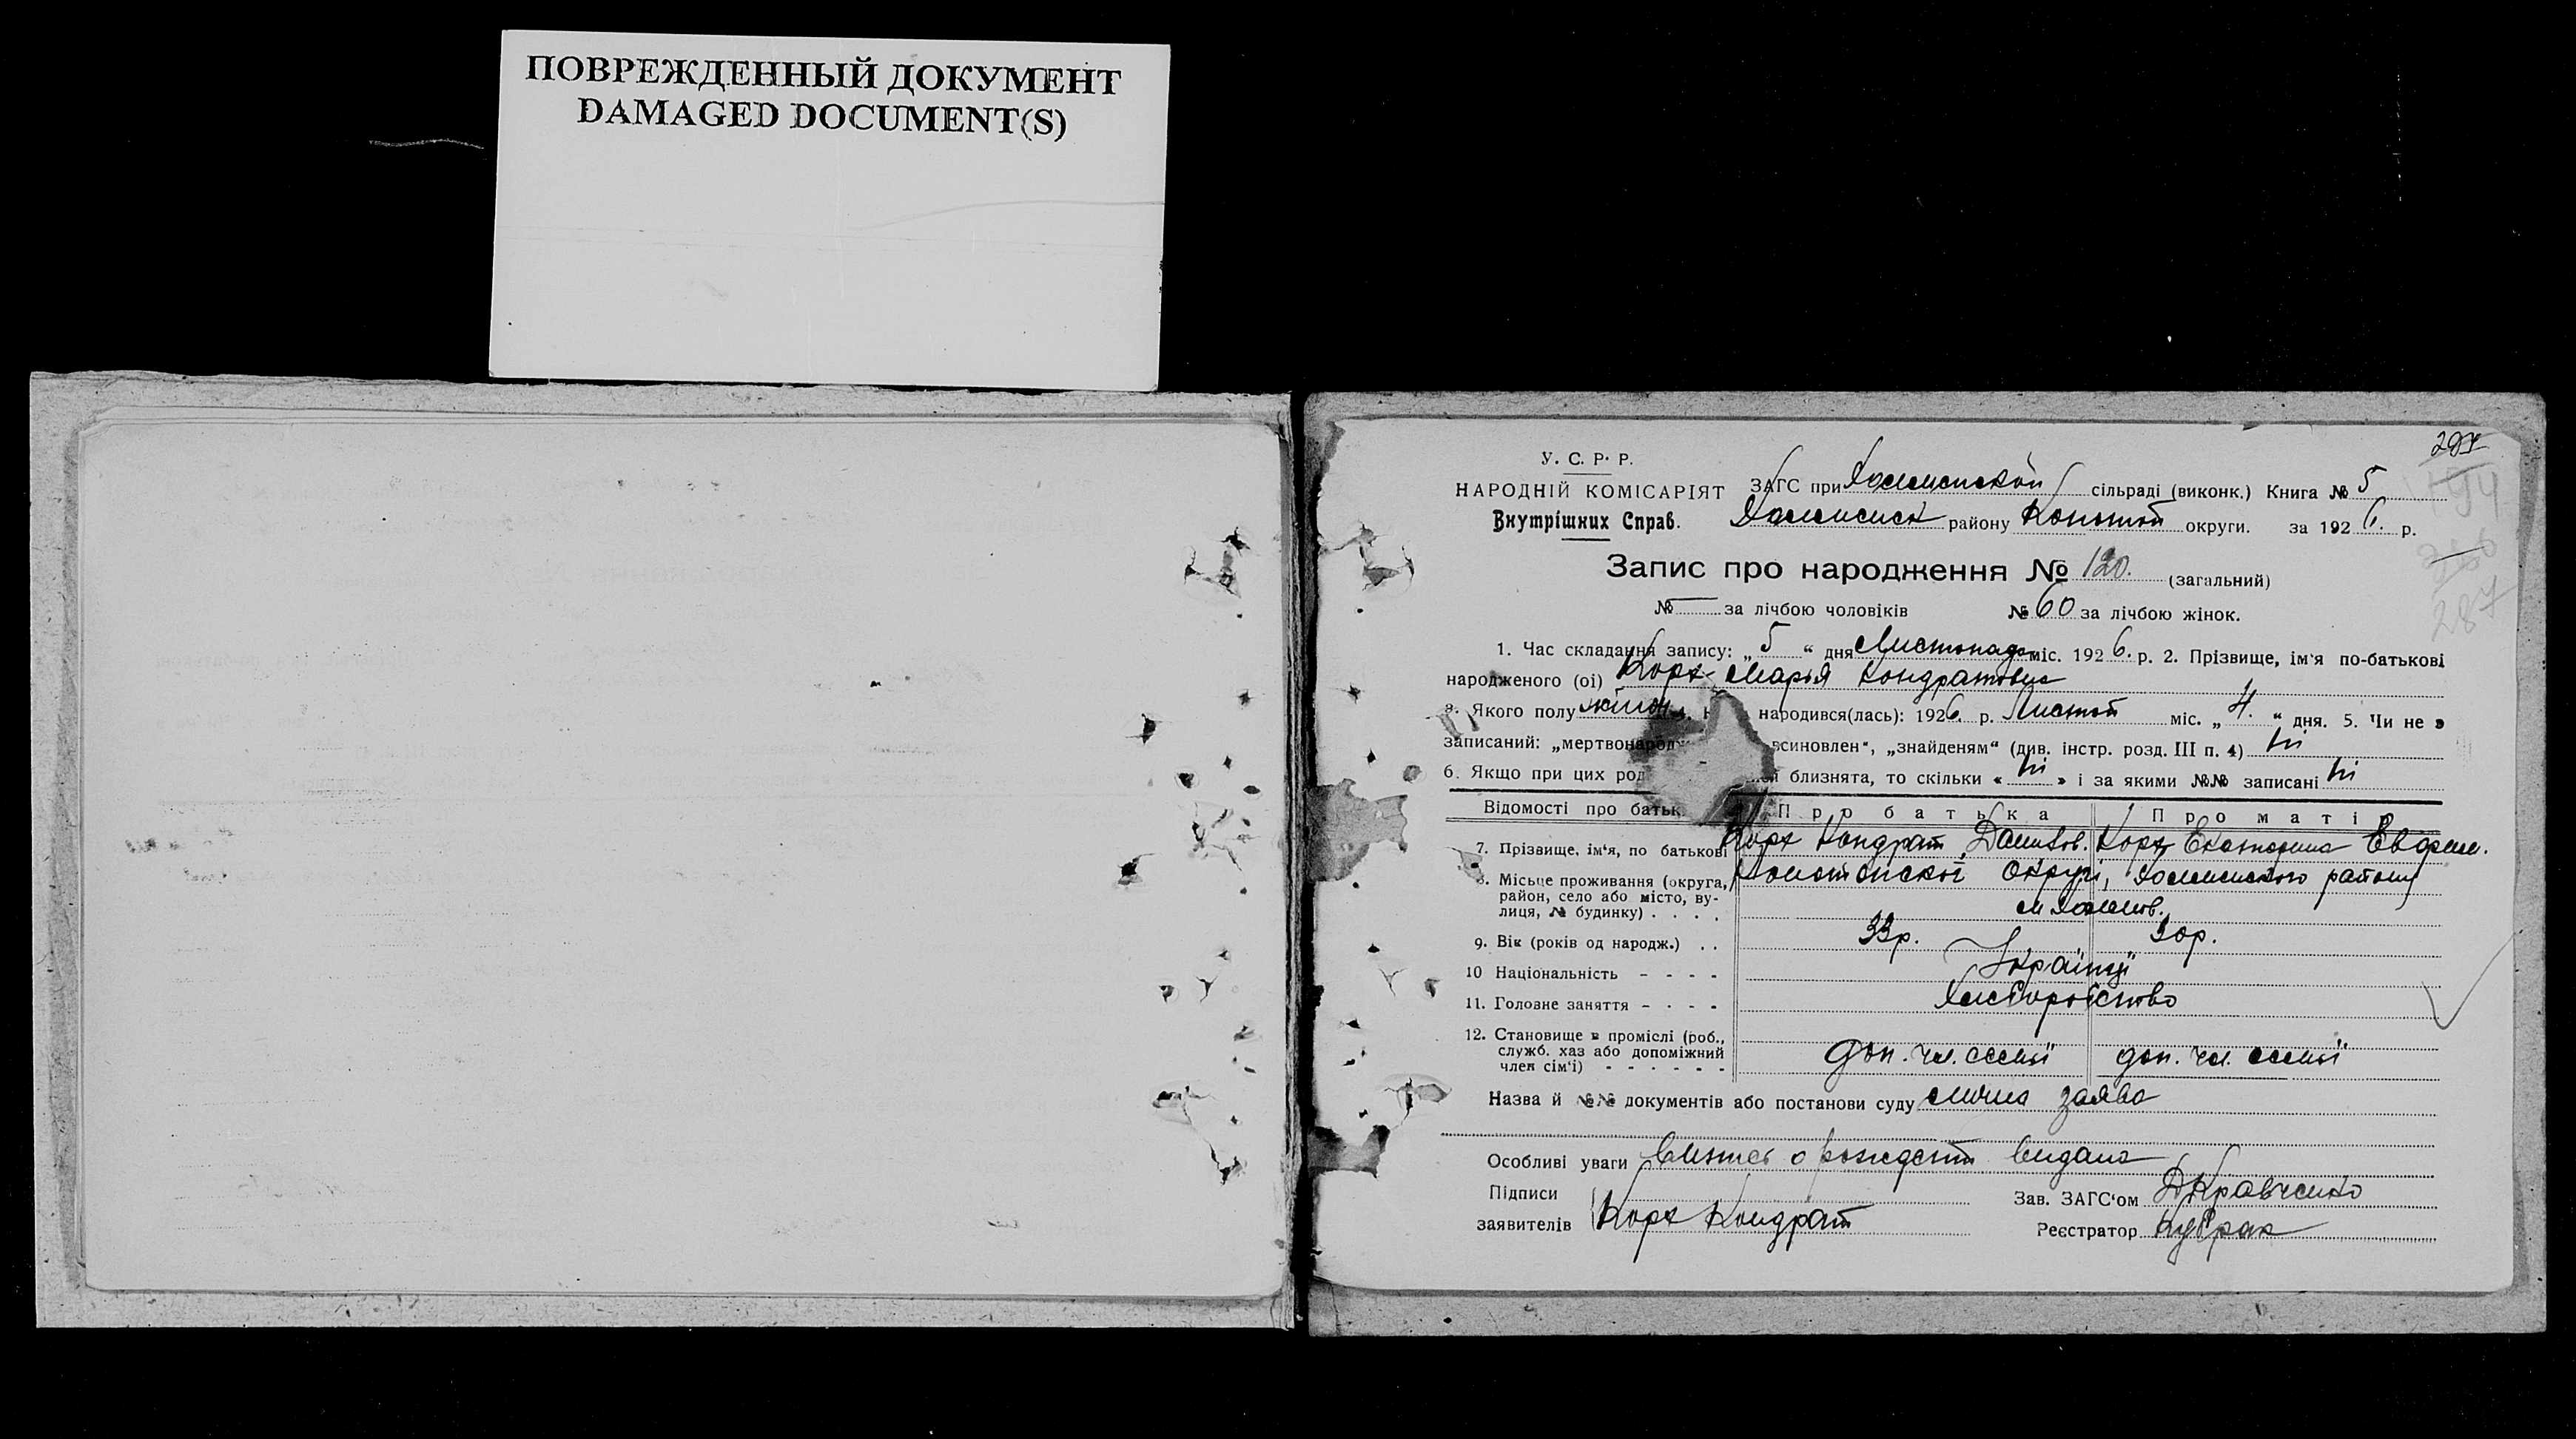 ПОВРЕЖДЕННЫЙ ДОКУМЕНТ
DAMAGED DOCUMENT(S)
287
У. С. Р. Р.
НАРОДНІЙ КОМІСАРІЯТ ЗАГС при сільраді (виконк.) Книга № 5
Внутрішних Справ. району Конотоп округи. за 1926. р.
286
287
Запис про народження № 120. (загальний)
№ — за лічбою чоловіків № 60 за лічбою жінок.
1. Час складання запису: „ 5 “ дня Листопада міс. 1926. р. 2. Прізвище, ім'я по-батькові
народженого (ої) Корж Марья Кондратовна
3. Якого полу жіноч. народився(лась): 1926. р. Листоп міс. „ 4. “ дня. 5. Чи не є
записаний: „мертвонародж всиновлен“, „знайденям“ (див. інстр. розд. III п. 4) Ні
6. Якщо при цих род близнята, то скільки « Ні » і за якими №№ записані Ні
Відомості про батьк Про батька Про матір
7. Прізвище, ім'я, по батькові Корж Кондрат Корж Екатерина
8. Місьце проживання (округа, Конотопскої Округи, району
район, село або місто, ву-
лиця, № будинку) . . . .
9. Вік (років од народж.) . . 33р. 30р.
10 Національність - - - - Українці
11. Головне заняття - - - - Хліборобство
12. Становище в промислі (роб.,
служб. хаз або допоміжний доп. чл. семьї доп. чл. семьї
член сім'ї) - - - - - -
Назва й №№ документів або постанови суду лична заява
Особливі уваги о рождении видана
Підписи Зав. ЗАГС'ом ДКравченко
заявителів Корж Кондрат Реєстратор